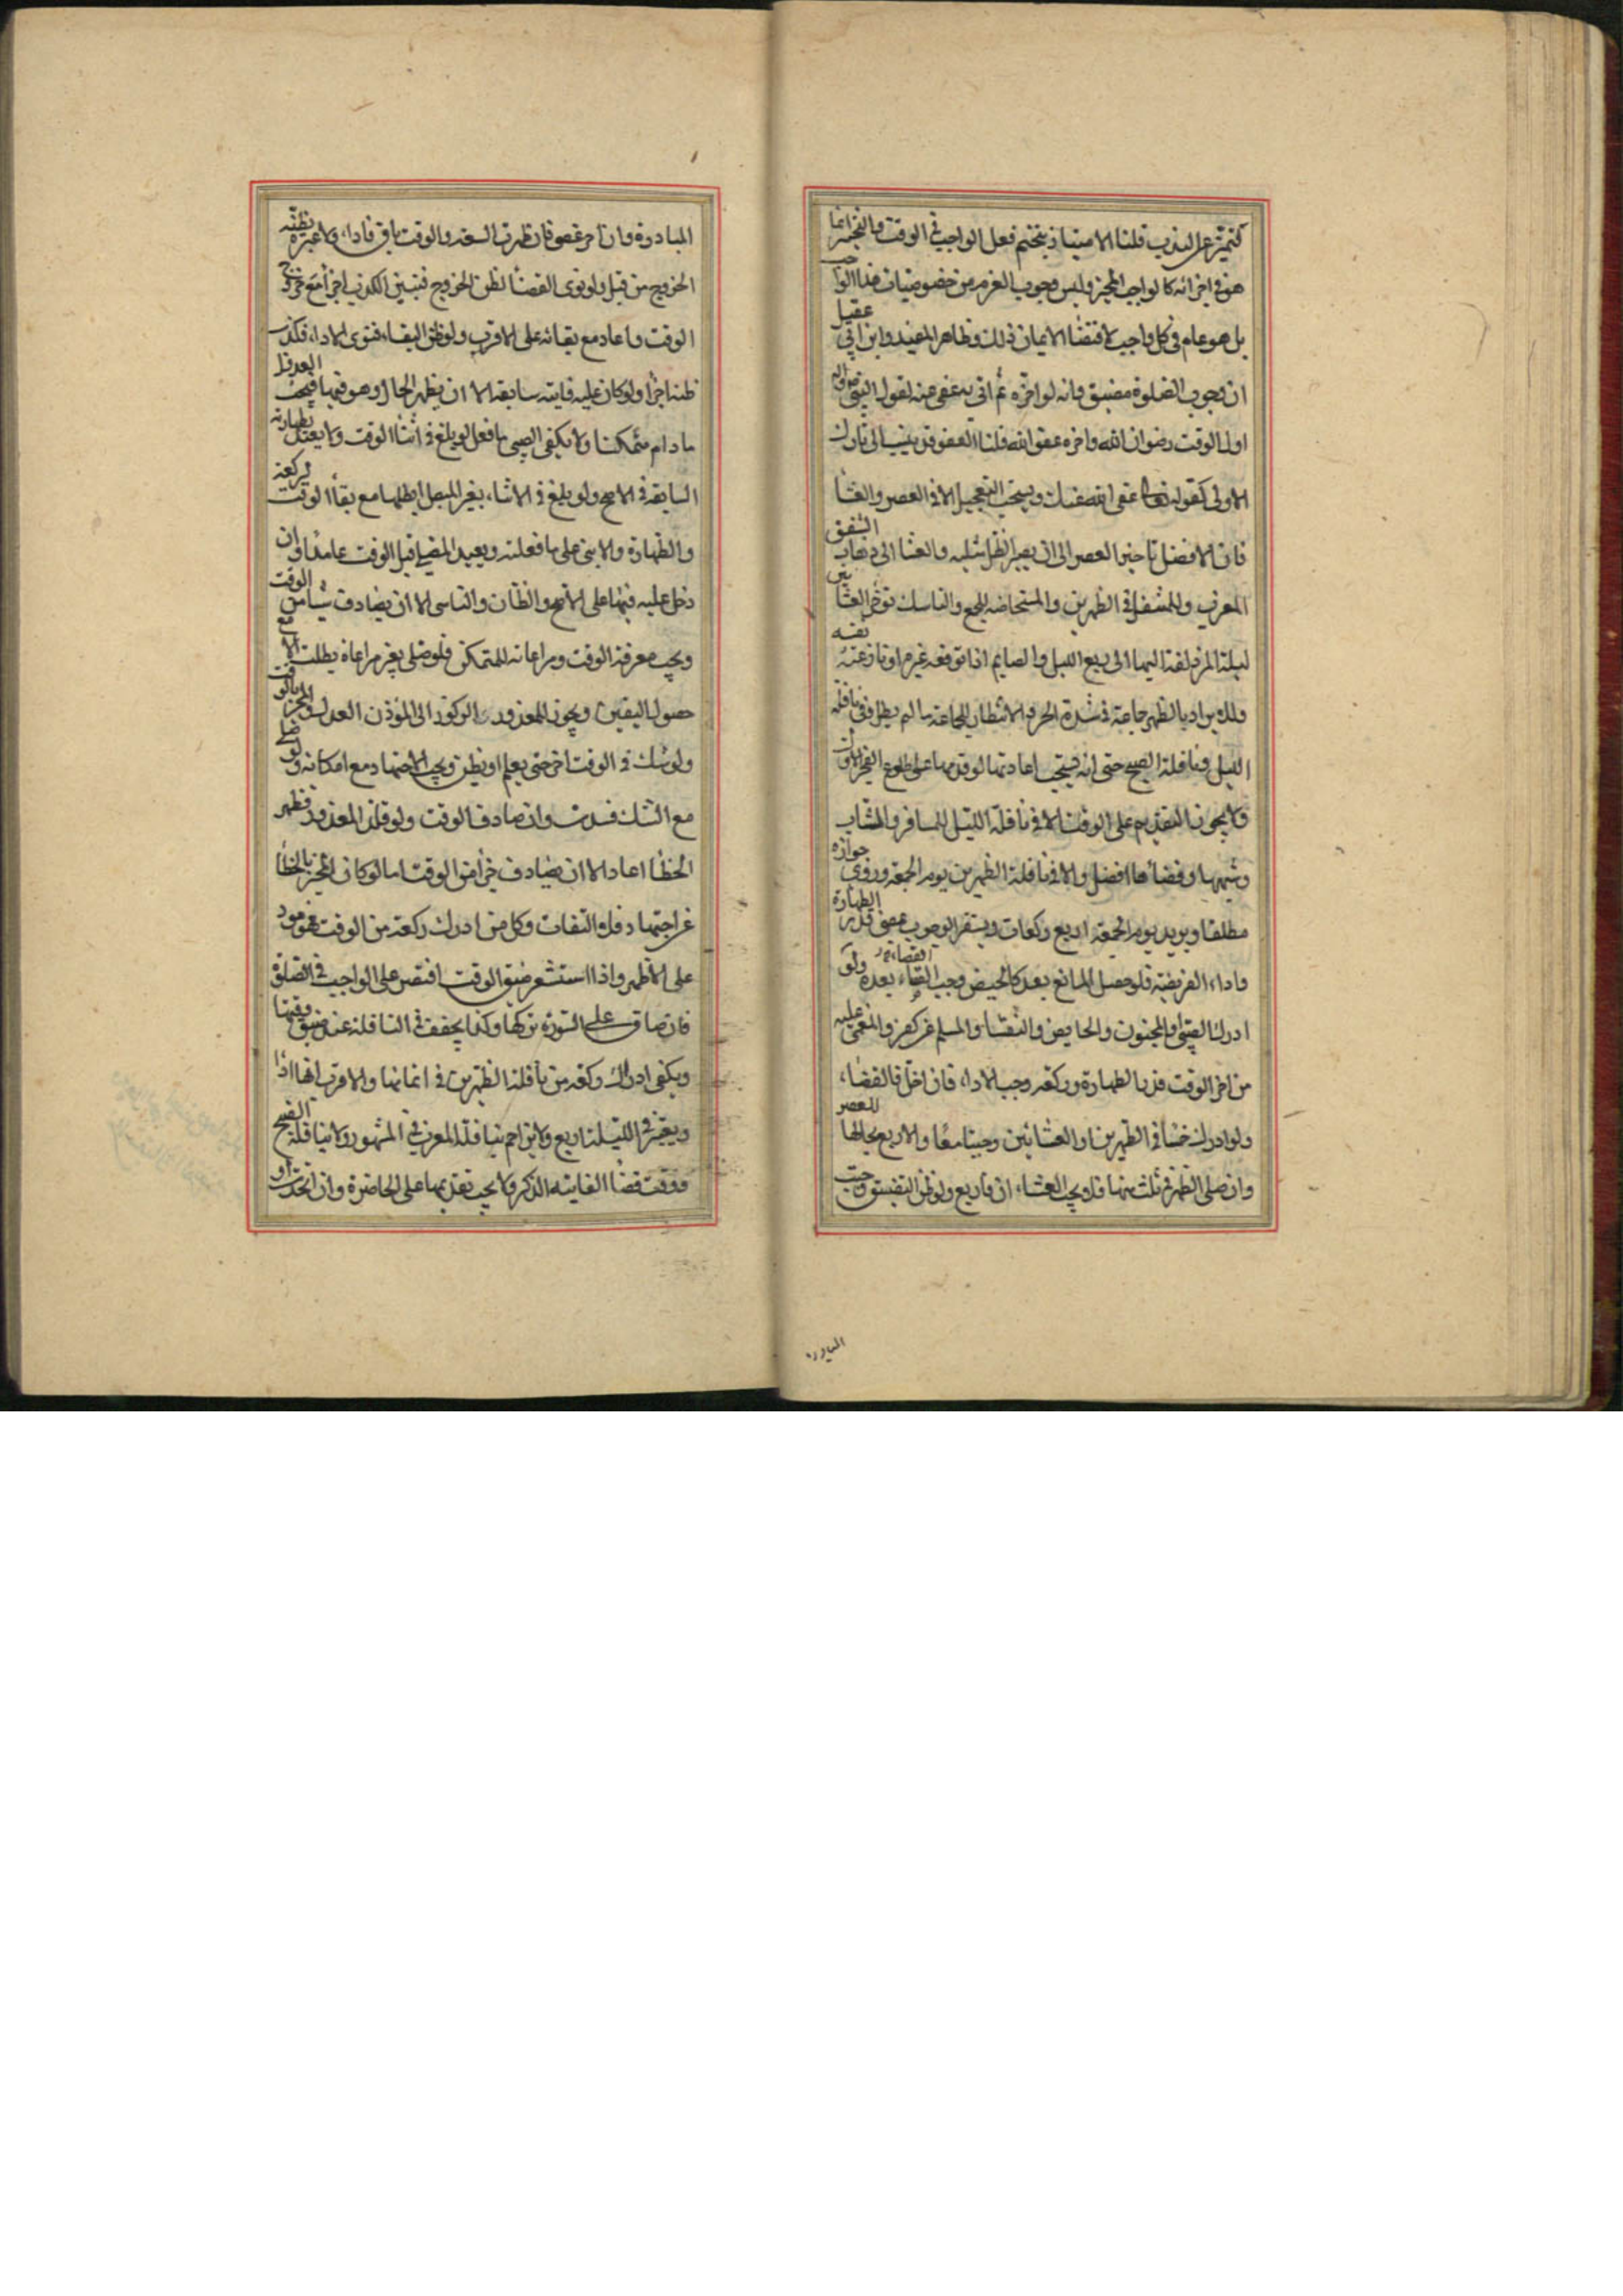 كتميزه عن الندب قلنا الامتياز بتحتم فعل الواجب في الوقت والتخيير انما
هو في اجزائه كالواجب المخير وليس وجوب العزم من خصوصيات هذا الواجب
بل هو عام في كل واجب لاقتضاء الايمان ذلك وظاهر المفيد وابن ابي عقيل
ان وجوب الصلوة مضيق وانه لو اخره ثم اتى به عفي عنه لقول النبي
اول الوقت رضوان الله واخره عفو الله قلنا العفو قد ينسب الى تارك
الاولى كقوله تعالى عفى الله عنك ويستحب التعجيل الا في العصر والعشاء
فان الافضل تاخير العصر الى ان يصير الظل مثليه والعشا الى ذهاب الشفق
المغربي وللمتنفل في الظهرين والمستحاضه للجمع والناسك توخر العشائين
ليلة المزدلفة اليها الى ربع الليل والصايم اذا توقعه غيره او نازعته نفسه
ولا يراد بالظهر جماعة في شدة الحر والانتظار للجماعة ما لم يطل وفي نافلة
الليل ونافلة الصبح حتى انه يستحب اعادتها لوقدمها على طلوع الفجر الاول
ولا يجوز التقديم على الوقت الا في نافلة الليل للمسافر والشاب
وشبهها وقضاءها افضل والا في نافلة الظهرين يوم الجمعة وروي جوازه
مطلقا ويزيد يوم الجمعة اربع ركعات ويستقر الوجوب بمضي قدر الطهارة
واداء الفريضة فلو حصل المانع بعد كالحيض وجب القضاء بعده ولو
ادرك الصبي والمجنون والحايض والنفساء والمسلم عن كفر والمغمى عليه
من اخر الوقت قدر الطهارة وركعة وجب الاداء فان اخل فالقضاء
ولو ادرك خمسا في الظهرين او العشائين وجبتا معا والاربع بحالها للعصر
وان صلى الظهر في ثلث منها فلا يجب العشاء ان فاربع ولو ظن التضيق وجبت
المبادرة
المبادرة وان اخر عصى فان ظهرت السعة والوقت باق فاداء ولا عبرة بظنه
الخروج من قبل ولو نوى القضاء لظن الخروج فتبين الكذب اجزأ مع خروج
الوقت واعاد مع بقائه على الاقرب ولو ظن البقاء فنوى الاداء فكذب
ظنه اجزأ ولو كان عليه فايتة سابقة الا ان يظهر الحال وهو فيها فيجب العدول
ما دام متمكنا ولا يكفي الصبي ما فعل لو بلغ في اثناء الوقت ولا يعتد بطهارته
السابقة في الاصح ولو بلغ في الاثناء بغير المبطل ابطلها مع بقاء الوقت لركعة
والطهارة والا بنى على ما فعلته ويعيد المصلي قبل الوقت عامدا وان
دخل عليه فيها على الاصح والظان والناسي الا ان يصادف شيئا من الوقت
ويجب معرفة الوقت ومراعاته للمتمكن فلو صلى بغير مراعاة بطلت الا مع
حصول اليقين ويجوز للمعذور الركون الى الموذن العدل والمخبر بالوقت
ولو شك في الوقت اخر حتى يعلم او يظن ويجب الاجتهاد مع امكانه ولو صلى
مع الشك فسدت وان صادف الوقت ولو قلد المعذور فظهر
الخطأ اعاد الا ان يصادف جزأ من الوقت اما لو كان المخبر بالخطأ
عن اجتهاد فلا التفات وكل من ادرك ركعة من الوقت فهو مود
على الاظهر واذا استشعر ضيق الوقت اقتصر على الواجب في الصلوة
فان ضاق على السورة تركها وكذا يخفف في النافلة عند ضيق وقتها
ويكفي ادراك ركعة من نافلة الظهرين في اتمامها والاقرب انها اداء
ويعتبر في الليلة اربع ولا يزاحم بنافلة المغرب في المشهور ولا بنافلة الصبح
ووقت قضاء الفايتة الذكر ولا يجب تقديمها على الحاضرة وان اتحدت او